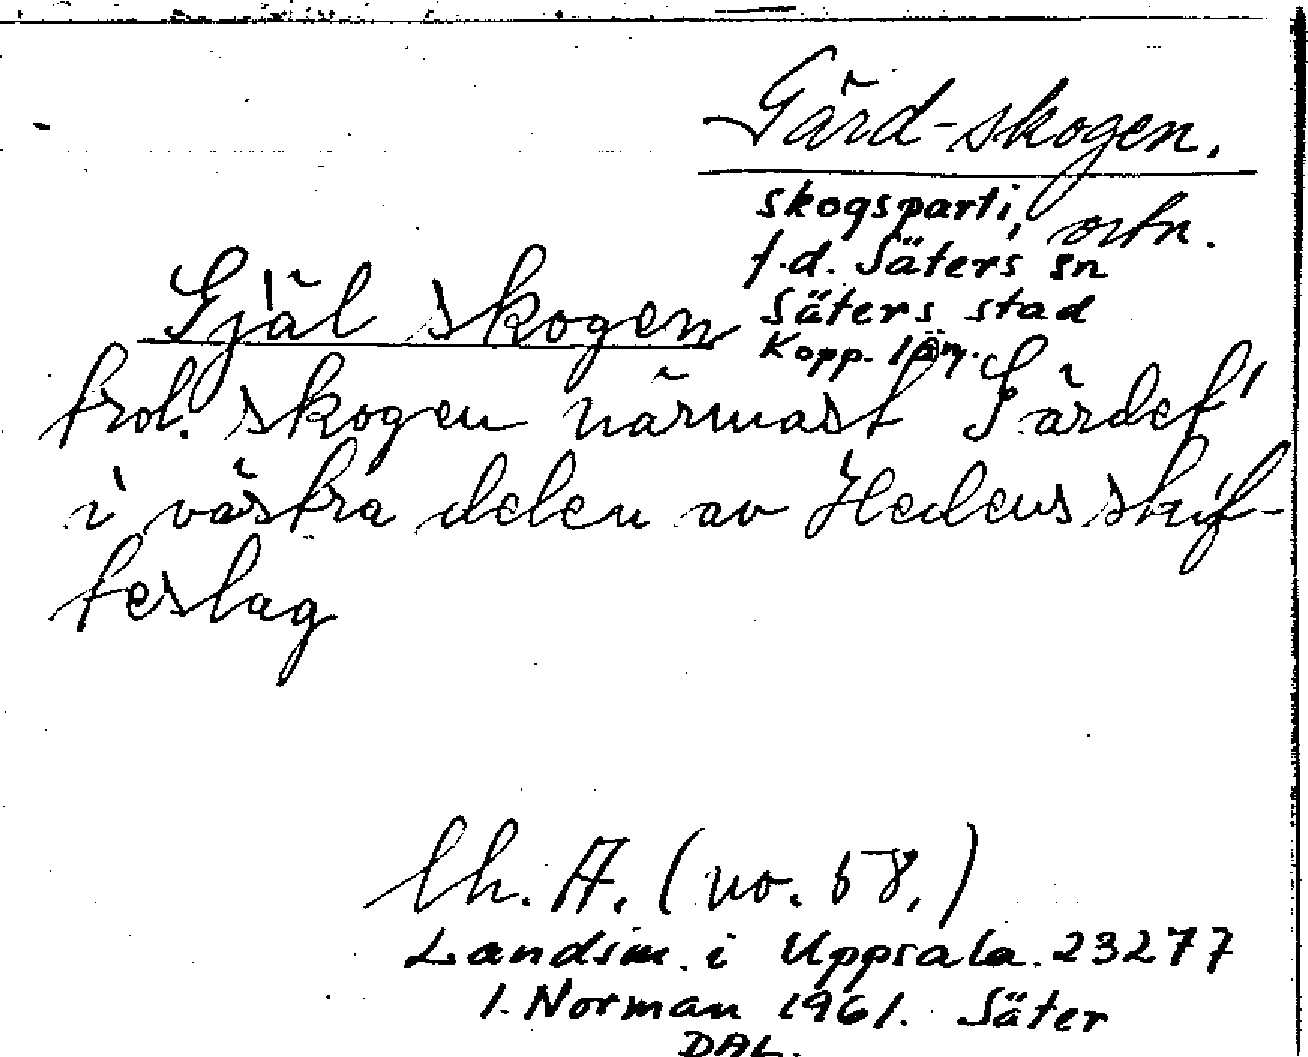 Gärd-skogen.
skogsparti, ortn.
f.d. Säters sn
Säters stad
Kopp. län.
Själ skogen
trol. skogen närmast "Särdet"
i västra delen av Hedens skif-
teslag
lh. A. (no. 58.)
Landsm. i Uppsala. 23277
I. Norman 1961. Säter
DAL.